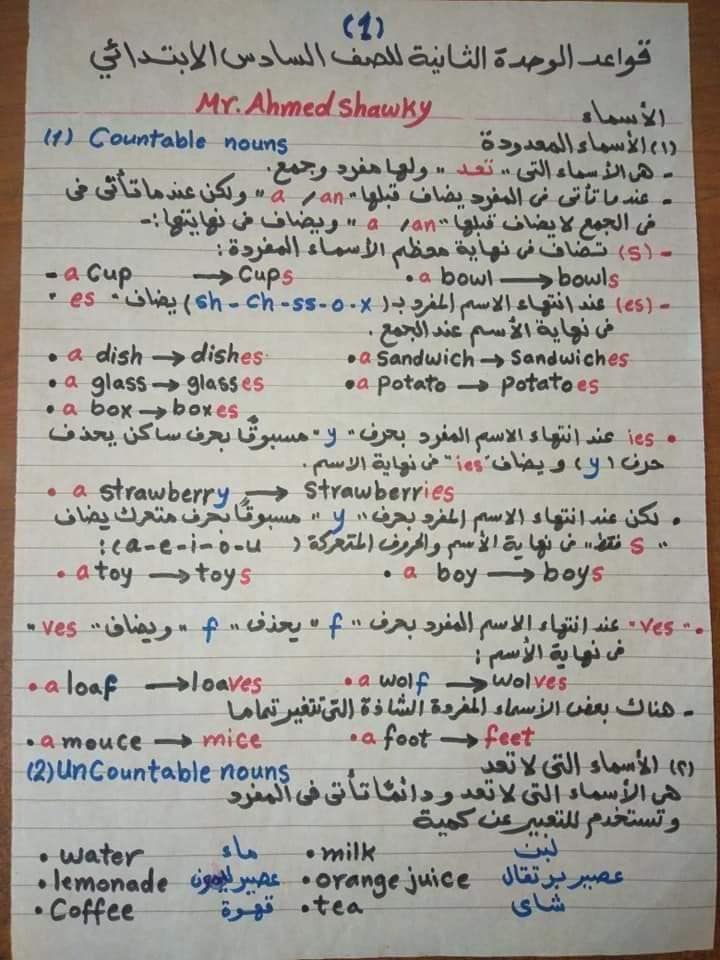 (1)
قواعد الوحدة الثانية للصف السادس الابتدائي
Mr. Ahmed Shawky
الأسماء
(1) Countable nouns (١) الأسماء المعدودة
- هي الأسماء التى "تعد" ولها مفرد وجمع.
- عندما تأتى فى المفرد يضاف قبلها "a / an" ولكن عندما تأتى فى
الجمع لا يضاف قبلها "a / an" ويضاف فى نهايتها:-
- (s) تضاف فى نهاية معظم الأسماء المفردة:
- a cup → cups • a bowl → bowls
- (es) عند انتهاء الاسم المفرد بـ (sh - ch - ss - o - x) يضاف "es"
فى نهاية الأسم عند الجمع.
• a dish → dishes • a sandwich → sandwiches
• a glass → glasses • a potato → potatoes
• a box → boxes
• ies عند انتهاء الاسم المفرد بحرف "y" مسبوقًا بحرف ساكن يحذف
حرف (y) ويضاف "ies" فى نهاية الاسم.
• a strawberry → strawberries
• لكن عند انتهاء الاسم المفرد بحرف "y" مسبوقًا بحرف متحرك يضاف
"s فقط" فى نهاية الأسم والحروف المتحركة (a-e-i-o-u):
• a toy → toys • a boy → boys
• "ves" عند انتهاء الاسم المفرد بحرف "f" يحذف "f" ويضاف "ves"
فى نهاية الأسم:
• a loaf → loaves • a wolf → wolves
- هناك بعض الأسماء المفردة الشاذة التى تتغير تماما
• a mouce → mice • a foot → feet
(2) UnCountable nouns (٢) الأسماء التى لا تعد
هى الأسماء التى لا تعد ودائمًا تأتى فى المفرد
وتستخدم للتعبير عن كمية
• water ماء • milk لبن
• lemonade عصير ليمون • orange juice عصير برتقال
• Coffee قهوة • tea شاى